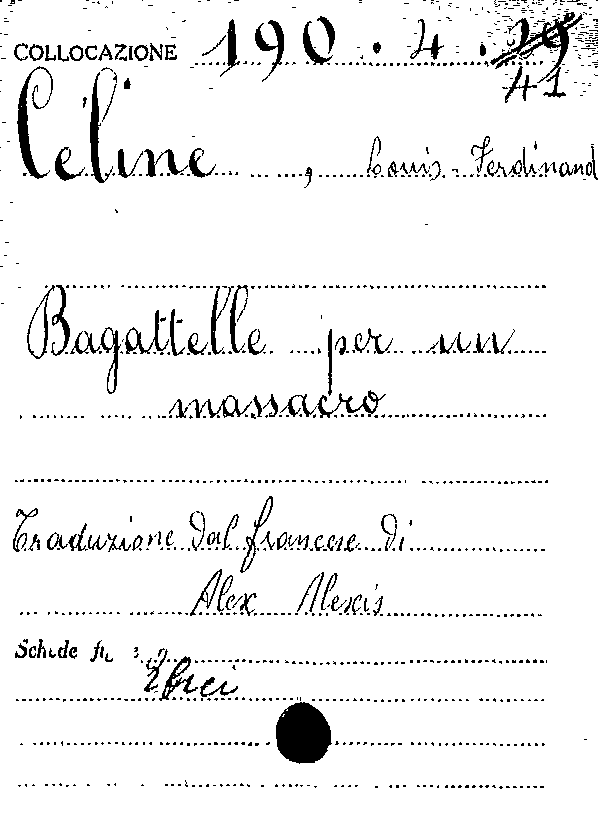 COLLOCAZIONE 190.4.39
41
Céline, Louis-Ferdinand
Bagattelle per un
massacro
Traduzione dal francese di
Alex Alexis
Schede fu :
Ebrei